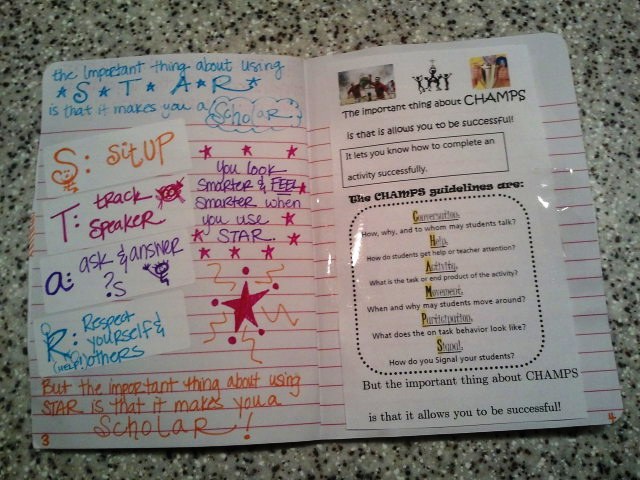 the Important thing about using
S T A R
is that it makes you a Scholar
S: Sit UP
T: track
SpEakER
a: ask & answer
?s
R: Respect
yourself &
(HELP) others
You look
Smarter & FEEL
Smarter when
you use
STAR.
But the important thing about using
STAR is that it makes you a
Scholar!
3
The important thing about CHAMPS
is that is allows you to be successful!
It lets you know how to complete an
activity successfully.
The CHAMPS guidelines are:
Conversation.
How, why, and to whom may students talk?
Help.
How do students get help or teacher attention?
Activity.
What is the task or end product of the activity?
Movement.
When and why may students move around?
Participation.
What does the on task behavior look like?
Signal.
How do you Signal your students?
But the important thing about CHAMPS
is that it allows you to be successful!
4